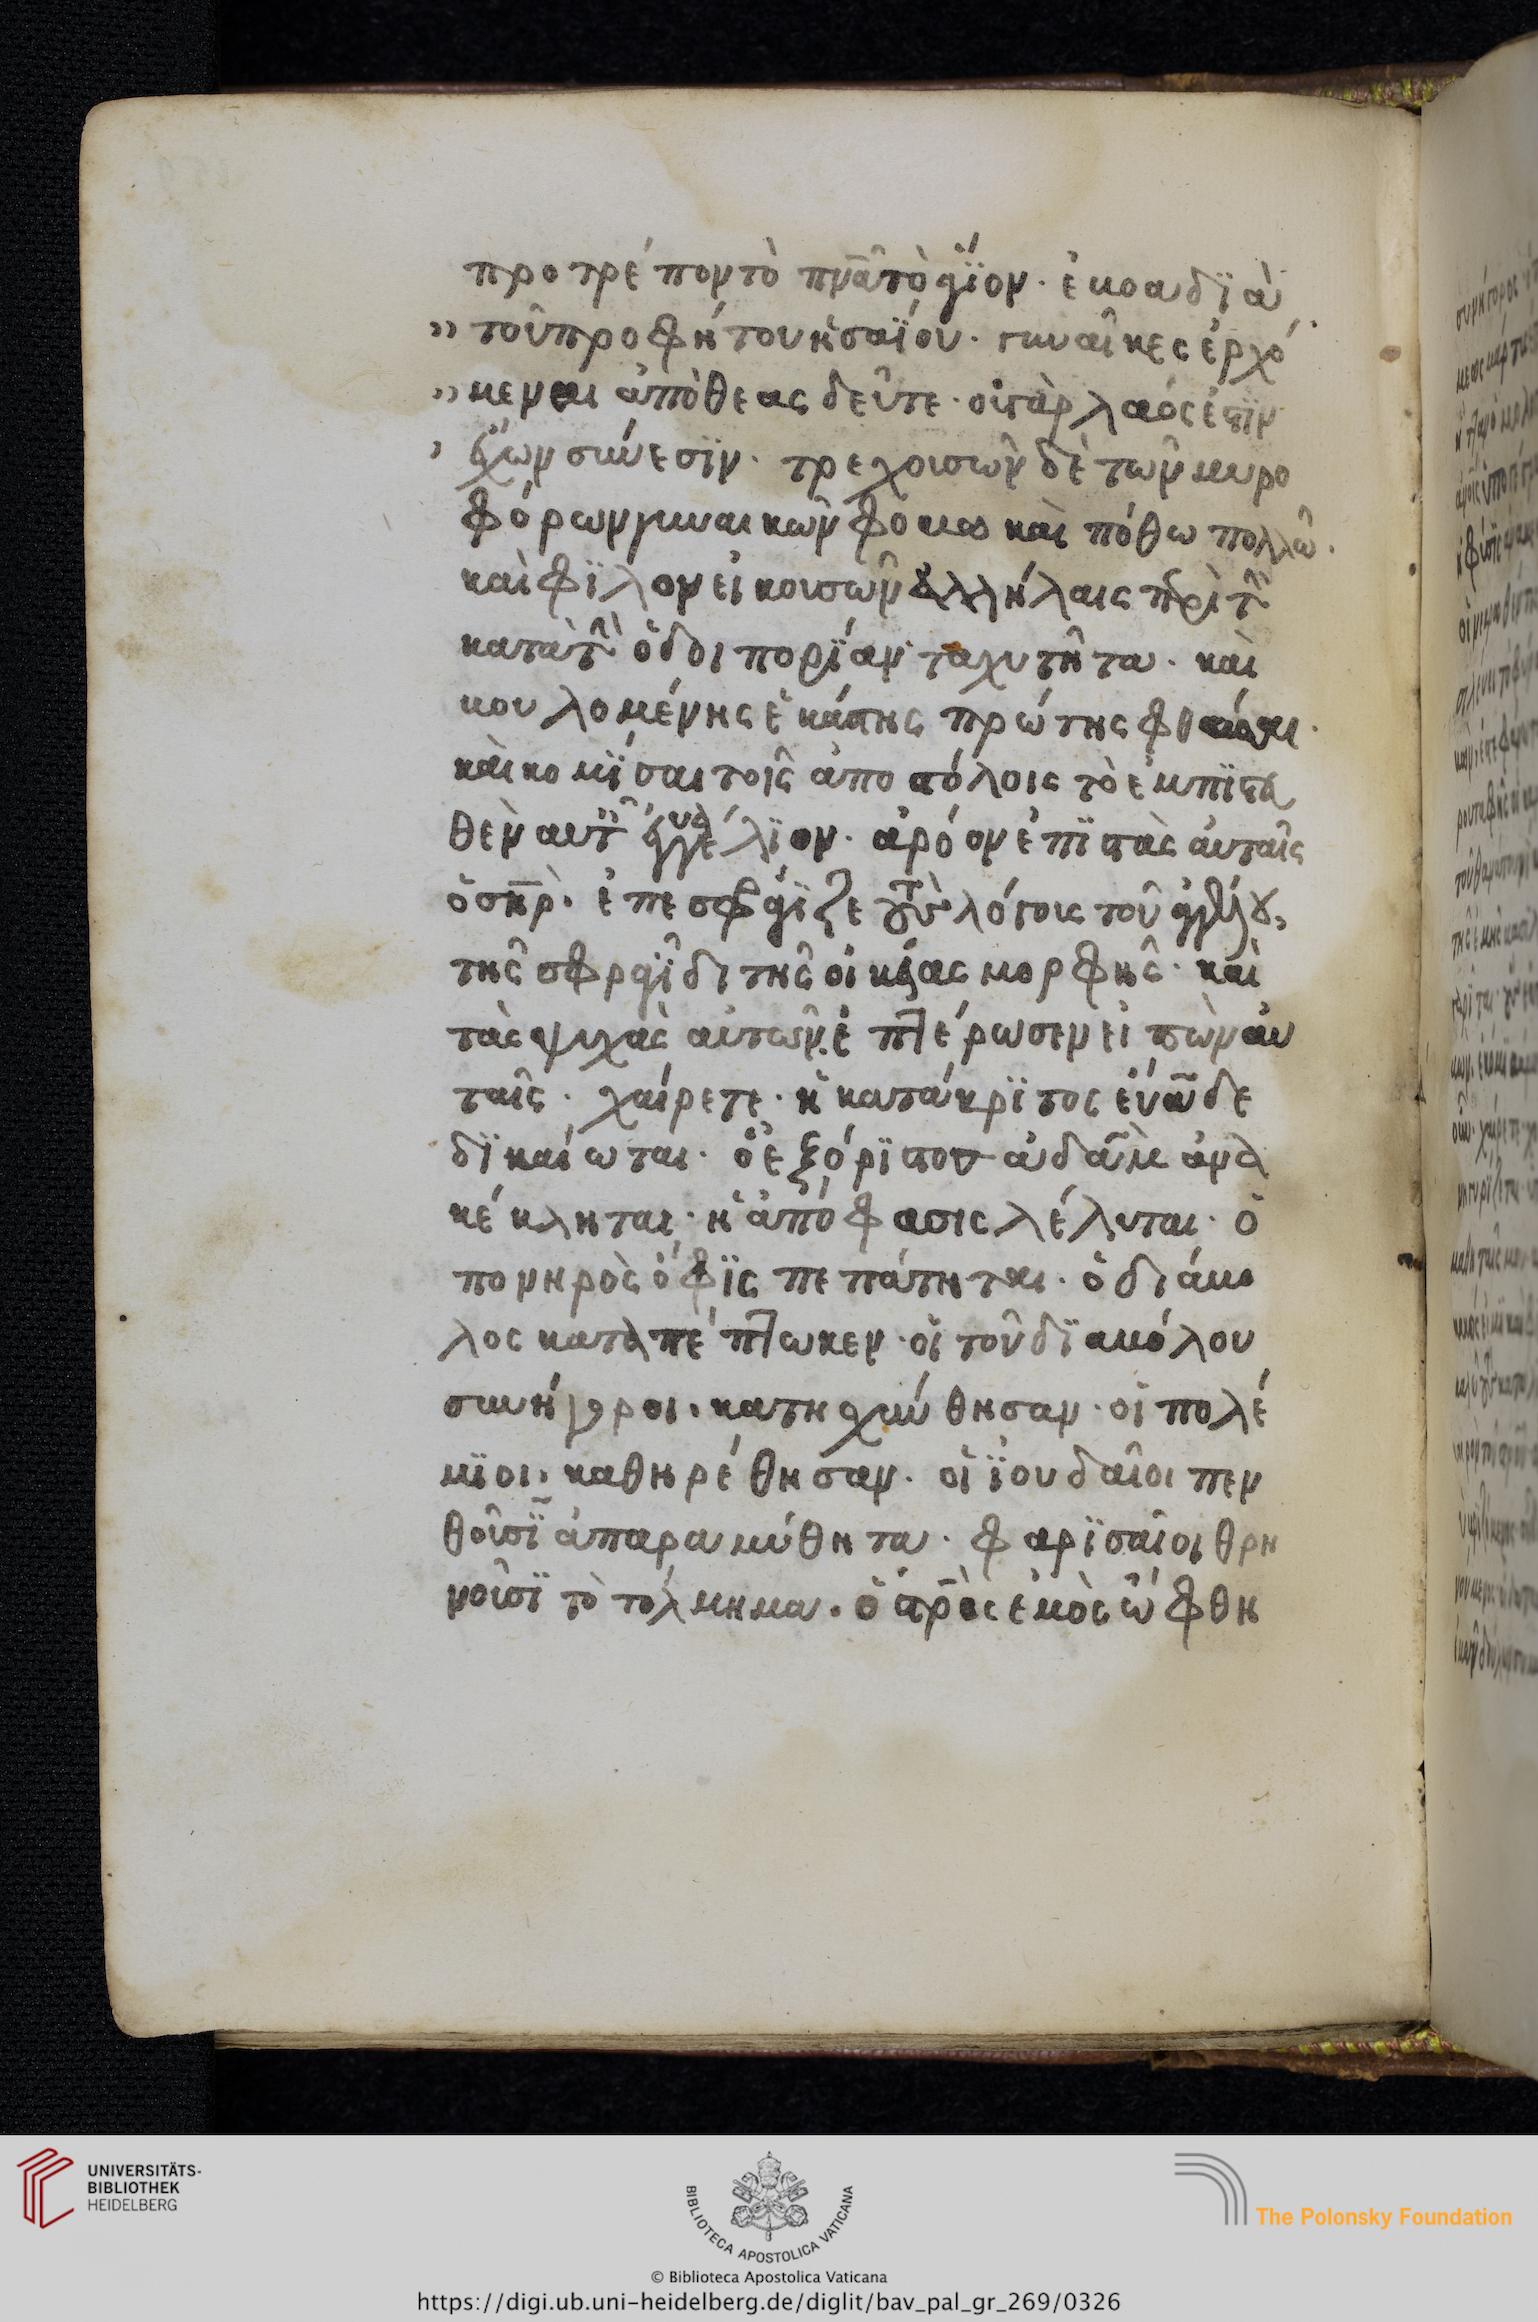 προτρέπον τὸ πν̅α τὸ ἅγϊον· ἐβόα δϊὰ
" τοῦ προφήτου ἡσαΐου· γυναῖκες ἐρχό
" μεναι ἀπὸ θέας δεῦτε· οὐ γὰρ λαός ἐστϊν
' ἔχων σύνεσϊν· τρεχουσῶν δὲ τῶν μυρο
φόρων γυναικῶν φόβω καὶ πόθω πολλῶ·
καὶ φϊλονεικουσῶν ἀλλήλαις περὶ τῆς
κατὰ τὴν ὁδοιπορΐαν ταχυτῆτα· καὶ
βουλομένης ἑκάστης πρώτης φθάσαι·
καὶ κομΐσαι τοῖς ἀποστόλοις τὸ ἐμπϊστευ
θὲν αὐτῶν εὐαγγέλϊον· ἀρθρον ἐπϊστὰς αὐταῖς
ὁ σ̅η̅ρ· ἐπεσφράγϊζε τοὺς λόγους τοῦ ἀγγέλου,
τῆς σφραγῖδι τῆς οἰκείας μορφῆς· καὶ
τὰς ψυχὰς αὐτῶν ἐπλέρωσεν εἰπὼν αὐ
ταῖς· χαίρετε· ἡ κατάκρϊτος εὔα δε
δϊκαίωται· ὁ ἐξόρϊστος ἀδὰμ ἀνα
κέκληται· ἡ ἀπόφασις λέλυται· ὁ
πονηρὸς ὄφϊς πεπάτηται· ὁ διάβο
λος καταπέπτωκεν· οἱ τοῦ δϊαβόλου
συνήγοροι· κατησχύνθησαν· οἱ πολέ
μϊοι· καθηρέθησαν· οἱ ϊουδαῖοι πεν
θοῦσϊ ἀπαραμύθητα· φαρϊσαῖοι θρη
νοῦσϊ τὸ τόλμημα· ὁ σ̅ρ̅ος ἐμὸς ὤφθη
UNIVERSITÄTS-
BIBLIOTHEK
HEIDELBERG
BIBLIOTECA APOSTOLICA VATICANA
The Polonsky Foundation
© Biblioteca Apostolica Vaticana
https://digi.ub.uni-heidelberg.de/diglit/bav_pal_gr_269/0326